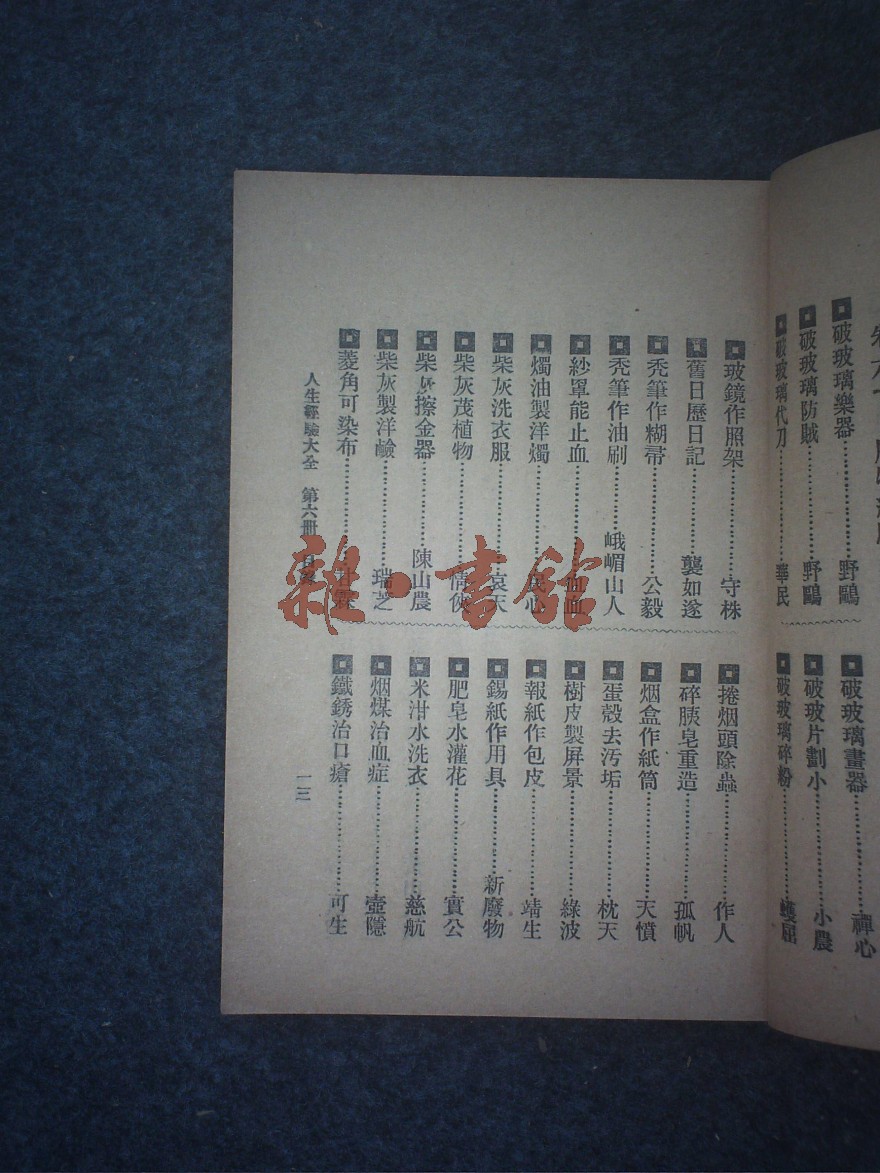 破玻璃樂器 野鷗
破玻璃防賊 野鷗
破玻璃代刀 華民
破玻璃畫器 禪心
破玻片劃小 小農
破玻璃碎粉
玻鏡作照架 守株
舊日歷日記 龔如遂
禿筆作糊帚 公毅
禿筆作油刷 峨嵋山人
紗罩能止血 血血
燭油製洋燭 民心
柴灰洗衣服 哀天
柴灰茂植物 情俠
柴灰擦金器 陳山農
柴灰製洋鹼 瑞芝
菱角可染布 甘霖
捲烟頭除蟲 作人
碎胰皂重造 孤帆
烟盒作紙筒 天憤
蛋殼去汚垢 枕天
樹皮製屏景 綠波
報紙作包皮 靖生
錫紙作用具 新廢物
肥皂水灌花 實公
米泔水洗衣 慈航
烟煤治血症 壺隱
鐵銹治口瘡 可生
人生經驗大全 第六冊 目錄
一三
雜·書館